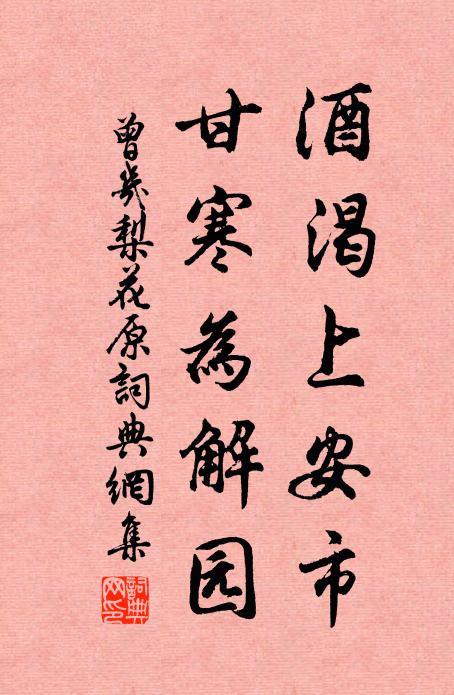 酒渴上安市
甘寒為解园
曾幾梨花原詞典網集
詞典網印